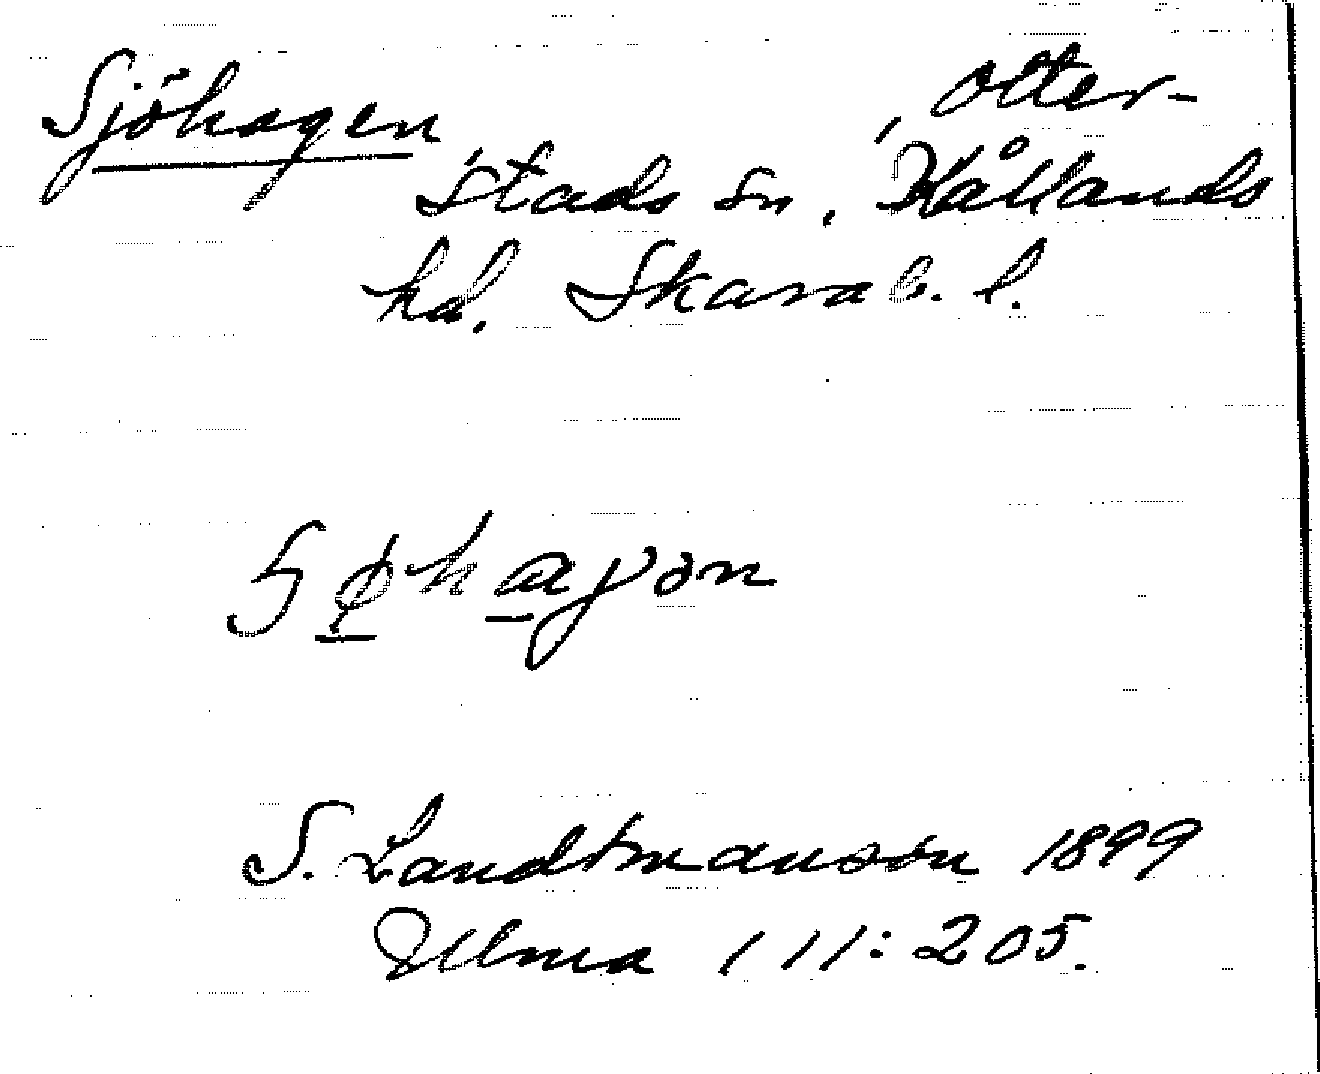 Sjöhagen, Otter-
stads sn, Kållands
hd. Skarab. l.
S. Landtmanson 1899
Ulma 111:205.